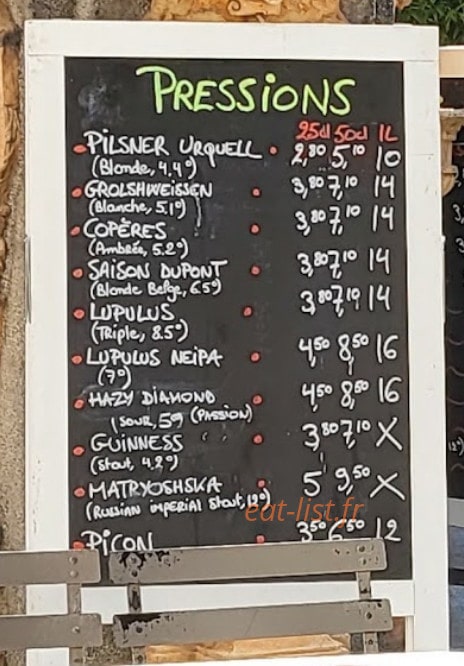 PRESSIONS
25cl 50cl 1L
PILSNER URQUELL 2,80 5,10 10
(Blonde, 4.4°)
GROLSHWEISSEN 3,80 7,10 14
(Blanche, 5.1°)
COPÈRES 3,80 7,10 14
(Ambrée, 5.2°)
SAISON DUPONT 3,80 7,10 14
(Blonde Belge, 6.5°)
LUPULUS 3,80 7,10 14
(Triple, 8.5°)
LUPULUS NEIPA 4,50 8,50 16
(7°)
HAZY DIAMOND 4,50 8,50 16
(SOUR, 5°) (PASSION)
GUINNESS 3,80 7,10 X
(Stout, 4.2°)
MATRYOSHSKA 5 9,50 X
(RUSSIAN IMPERIAL STOUT, 12°)
eat-list.fr
PICON 3,50 6,50 12